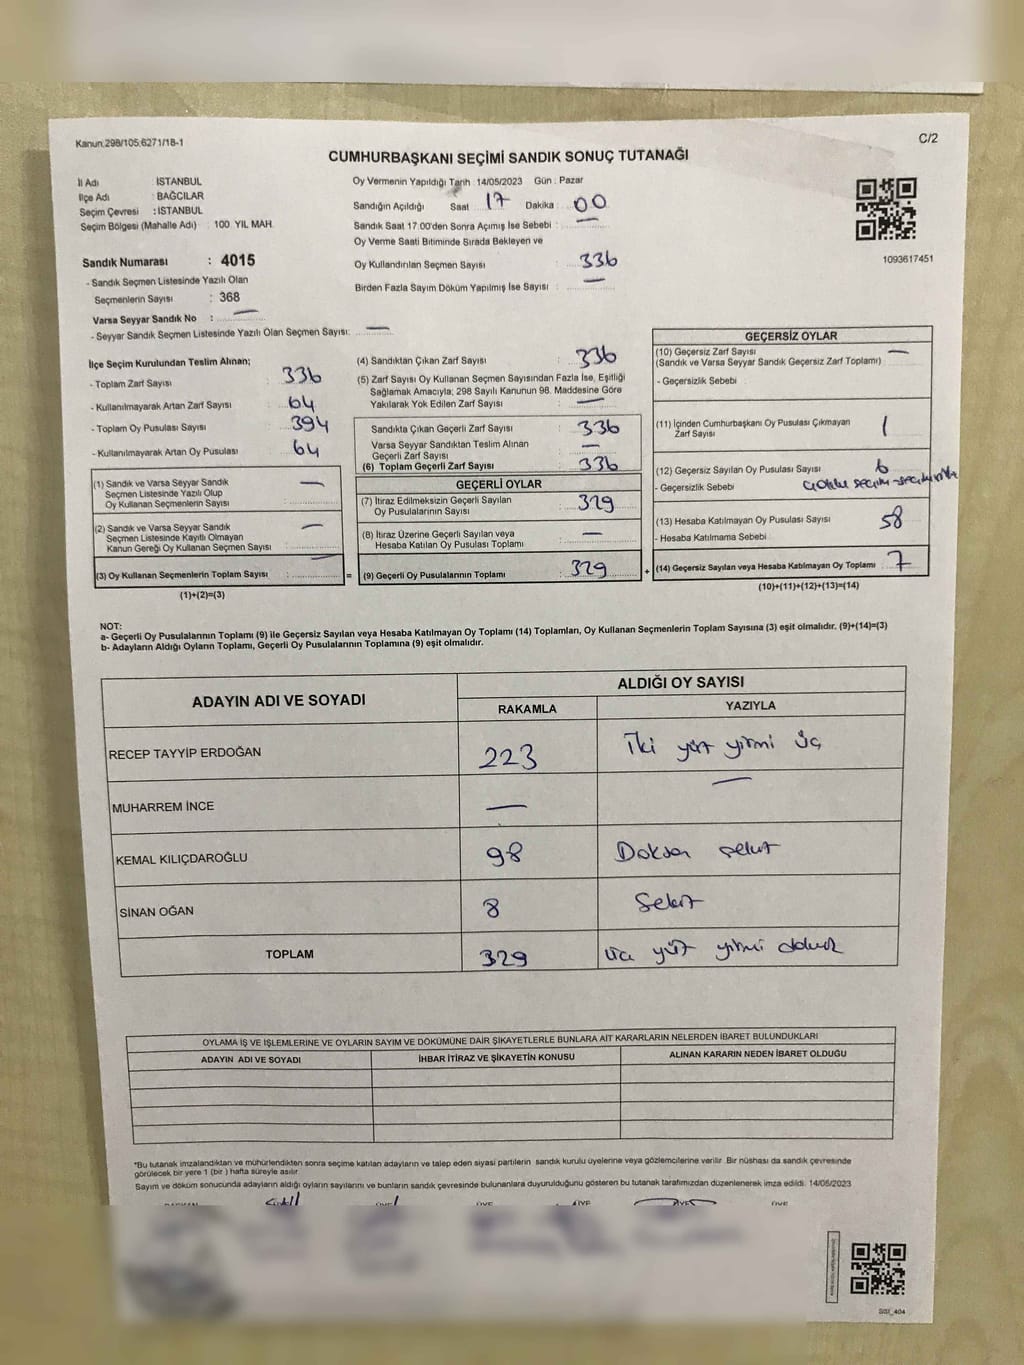 Kanun.298/105;6271/18-1
C/2
CUMHURBAŞKANI SEÇİMİ SANDIK SONUÇ TUTANAĞI
İl Adı : İSTANBUL
İlçe Adı : BAĞCILAR
Seçim Çevresi : İSTANBUL
Seçim Bölgesi (Mahalle Adı) : 100. YIL MAH.
Sandık Numarası : 4015
- Sandık Seçmen Listesinde Yazılı Olan
Seçmenlerin Sayısı : 368
Varsa Seyyar Sandık No : —
- Seyyar Sandık Seçmen Listesinde Yazılı Olan Seçmen Sayısı: —
Oy Vermenin Yapıldığı Tarih : 14/05/2023 Gün : Pazar
Sandığın Açıldığı Saat 17 Dakika : 00
Sandık Saat 17:00'den Sonra Açımış İse Sebebi : —
Oy Verme Saati Bitiminde Sırada Bekleyen ve
Oy Kullandırılan Seçmen Sayısı : 336
Birden Fazla Sayım Döküm Yapılmış İse Sayısı : —
1093617451
İlçe Seçim Kurulundan Teslim Alınan;
- Toplam Zarf Sayısı : 336
- Kullanılmayarak Artan Zarf Sayısı : 64
- Toplam Oy Pusulası Sayısı : 394
- Kullanılmayarak Artan Oy Pusulası : 64
(1) Sandık ve Varsa Seyyar Sandık
Seçmen Listesinde Yazılı Olup
Oy Kullanan Seçmenlerin Sayısı : —
(2) Sandık ve Varsa Seyyar Sandık
Seçmen Listesinde Kayıtlı Olmayan
Kanun Gereği Oy Kullanan Seçmen Sayısı : —
(3) Oy Kullanan Seçmenlerin Toplam Sayısı : —
(1)+(2)=(3)
=
(4) Sandıktan Çıkan Zarf Sayısı : 336
(5) Zarf Sayısı Oy Kullanan Seçmen Sayısından Fazla İse, Eşitliği
Sağlamak Amacıyla; 298 Sayılı Kanunun 98. Maddesine Göre
Yakılarak Yok Edilen Zarf Sayısı : —
Sandıkta Çıkan Geçerli Zarf Sayısı : 336
Varsa Seyyar Sandıktan Teslim Alınan
Geçerli Zarf Sayısı : —
(6) Toplam Geçerli Zarf Sayısı : 336
GEÇERLİ OYLAR
(7) İtiraz Edilmeksizin Geçerli Sayılan
Oy Pusulalarının Sayısı : 329
(8) İtiraz Üzerine Geçerli Sayılan veya
Hesaba Katılan Oy Pusulası Toplamı : —
(9) Geçerli Oy Pusulalarının Toplamı : 329
+
GEÇERSİZ OYLAR
(10) Geçersiz Zarf Sayısı : —
(Sandık ve Varsa Seyyar Sandık Geçersiz Zarf Toplamı)
- Geçersizlik Sebebi :
(11) İçinden Cumhurbaşkanı Oy Pusulası Çıkmayan
Zarf Sayısı : 1
(12) Geçersiz Sayılan Oy Pusulası Sayısı : 6
- Geçersizlik Sebebi :
(13) Hesaba Katılmayan Oy Pusulası Sayısı : 58
- Hesaba Katılmama Sebebi :
(14) Geçersiz Sayılan veya Hesaba Katılmayan Oy Toplamı : 7
(10)+(11)+(12)+(13)=(14)
NOT:
a- Geçerli Oy Pusulalarının Toplamı (9) ile Geçersiz Sayılan veya Hesaba Katılmayan Oy Toplamı (14) Toplamları, Oy Kullanan Seçmenlerin Toplam Sayısına (3) eşit olmalıdır. (9)+(14)=(3)
b- Adayların Aldığı Oyların Toplamı, Geçerli Oy Pusulalarının Toplamına (9) eşit olmalıdır.
ADAYIN ADI VE SOYADI
ALDIĞI OY SAYISI
RAKAMLA YAZIYLA
RECEP TAYYİP ERDOĞAN 223 İki yüz yirmi üç
MUHARREM İNCE — —
KEMAL KILIÇDAROĞLU 98 Doksan sekiz
SİNAN OĞAN 8 Sekiz
TOPLAM 329 üç yüz yirmi dokuz
OYLAMA İŞ VE İŞLEMLERİNE VE OYLARIN SAYIM VE DÖKÜMÜNE DAİR ŞİKAYETLERLE BUNLARA AİT KARARLARIN NELERDEN İBARET BULUNDUKLARI
ADAYIN ADI VE SOYADI İHBAR İTİRAZ VE ŞİKAYETİN KONUSU ALINAN KARARIN NEDEN İBARET OLDUĞU
*Bu tutanak imzalandıktan ve mühürlendikten sonra seçime katılan adayların ve talep eden siyasi partilerin sandık kurulu üyelerine veya gözlemcilerine verilir. Bir nüshası da sandık çevresinde
görülecek bir yere 1 (bir ) hafta süreyle asılır.
Sayım ve döküm sonucunda adayların aldığı oyların sayılarını ve bunların sandık çevresinde bulunanlara duyurulduğunu gösteren bu tutanak tarafımızdan düzenlenerek imza edildi. 14/05/2023